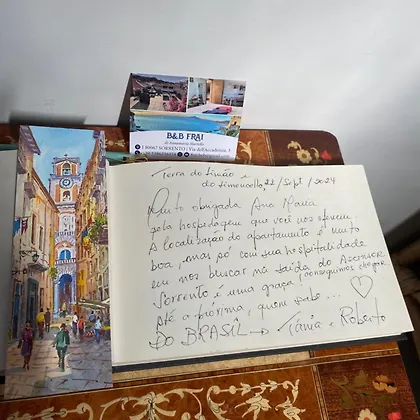 B&B FRAI
di Annamaria Mariello
80067 SORRENTO | Via dell'Accademia,
Terra do Limão e
do Limoncello, 22/Sept/2024
Muito obrigada Ana Maria
pela hospedagem que você nos ofereceu.
A localização do apartamento é muito
boa, mas só com sua hospitalidade
em nos buscar na saída do Ascensor
conseguimos chegar
Sorrento é uma graça!
até a próxima, quem sabe...
DO BRASIL → Tânia e Roberto